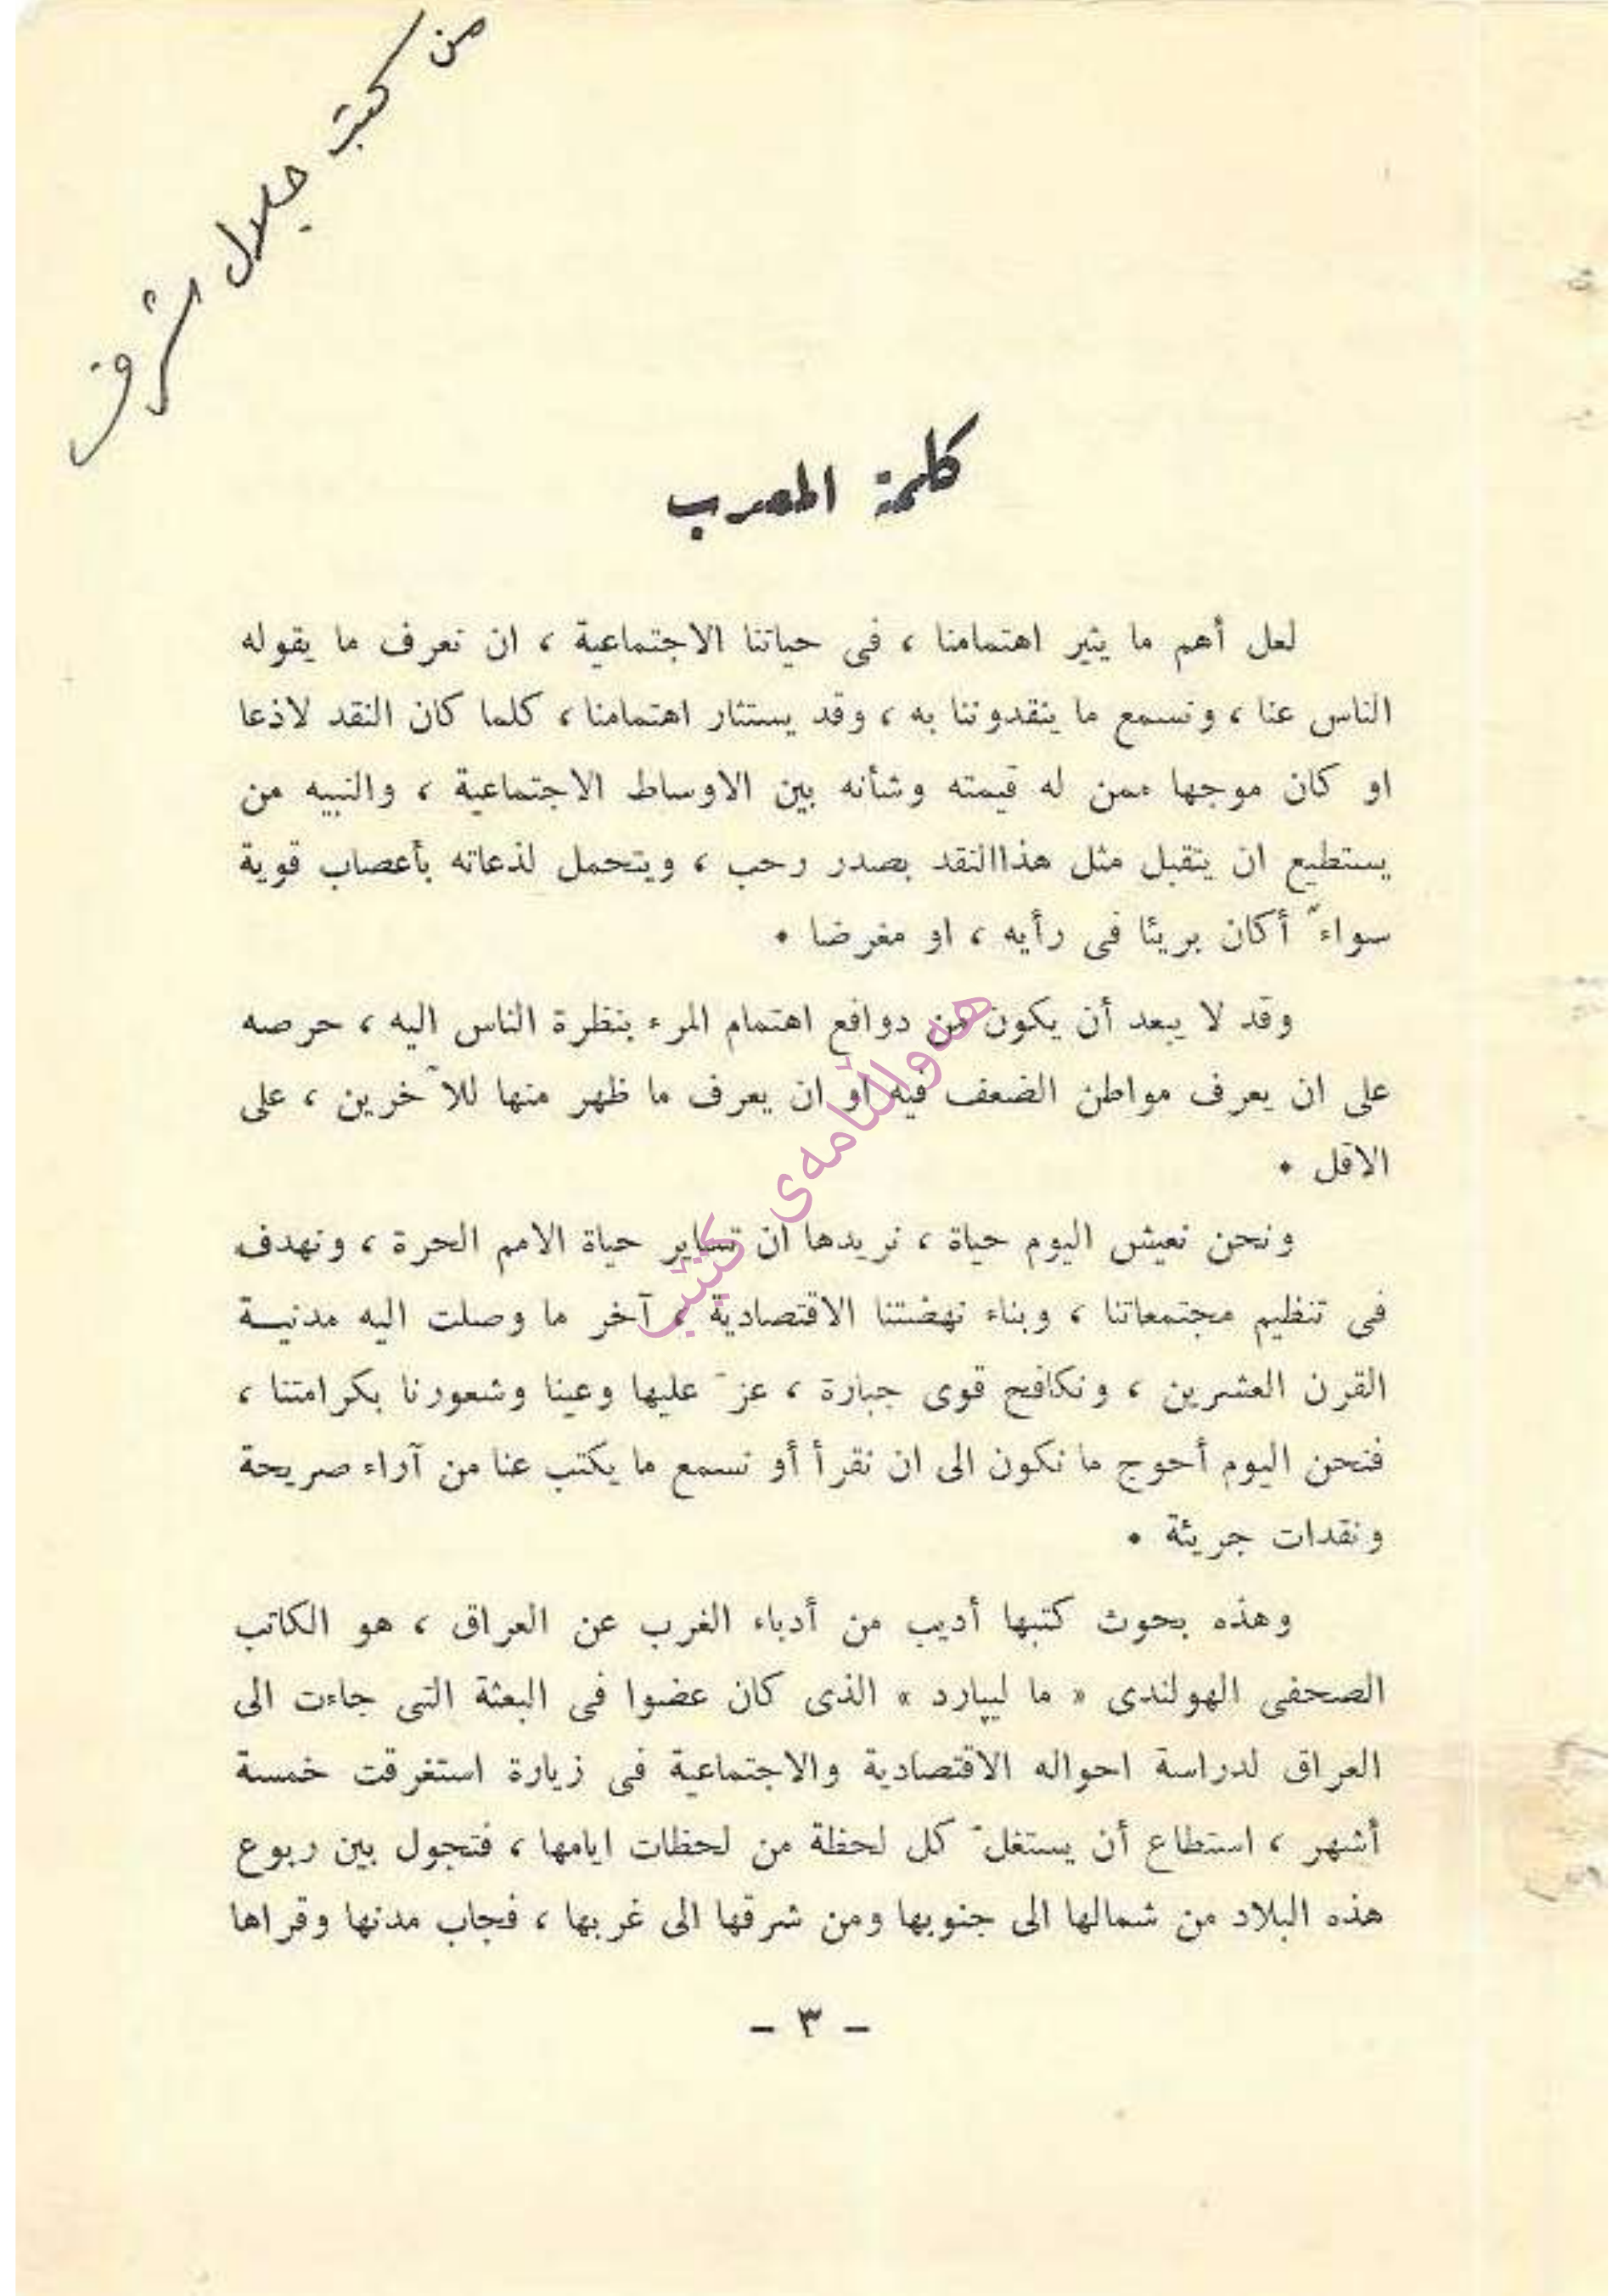 من كتب جلال شرف
كلمة المعرب
لعل أهم ما يثير اهتمامنا ، فى حياتنا الاجتماعية ، ان نعرف ما يقوله
الناس عنا ، ونسمع ما ينقدوننا به ، وقد يستثار اهتمامنا ، كلما كان النقد لاذعا
او كان موجها ممن له قيمته وشأنه بين الاوساط الاجتماعية ، والنبيه من
يستطيع ان يتقبل مثل هذاالنقد بصدر رحب ، ويتحمل لذعاته بأعصاب قوية
سواءّ أكان بريئا فى رأيه ، او مغرضا .
وقد لا يبعد أن يكون من دوافع اهتمام المرء بنظرة الناس اليه ، حرصه
على ان يعرف مواطن الضعف فيه او ان يعرف ما ظهر منها للآخرين ، على
الاقل .
ونحن نعيش اليوم حياة ، نريدها ان تساير حياة الامم الحرة ، ونهدف
فى تنظيم مجتمعاتنا ، وبناء نهضتنا الاقتصادية ، آخر ما وصلت اليه مدنيـة
القرن العشرين ، ونكافح قوى جبارة ، عزّ عليها وعينا وشعورنا بكرامتنا ،
فنحن اليوم أحوج ما نكون الى ان نقرأ أو نسمع ما يكتب عنا من آراء صريحة
ونقدات جريئة .
وهذه بحوث كتبها أديب من أدباء الغرب عن العراق ، هو الكاتب
الصحفى الهولندى « ما ليبارد » الذى كان عضوا فى البعثة التى جاءت الى
العراق لدراسة احواله الاقتصادية والاجتماعية فى زيارة استغرقت خمسة
أشهر ، استطاع أن يستغلّ كل لحظة من لحظات ايامها ، فتجول بين ربوع
هذه البلاد من شمالها الى جنوبها ومن شرقها الى غربها ، فجاب مدنها وقراها
هەواڵنامەی کتێب
– ٣ –